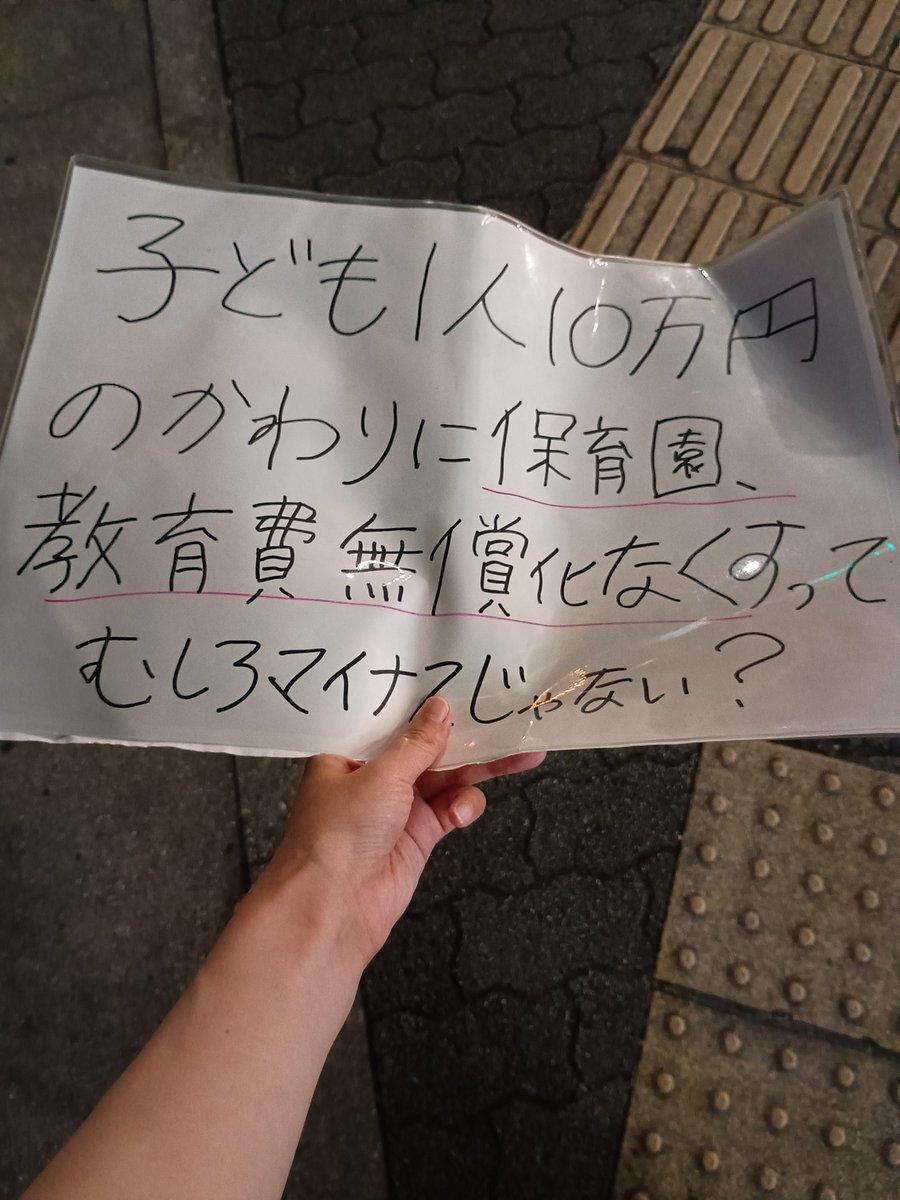 子ども1人10万円
のかわりに保育園、
教育費無償化なくすって
むしろマイナスじゃない？